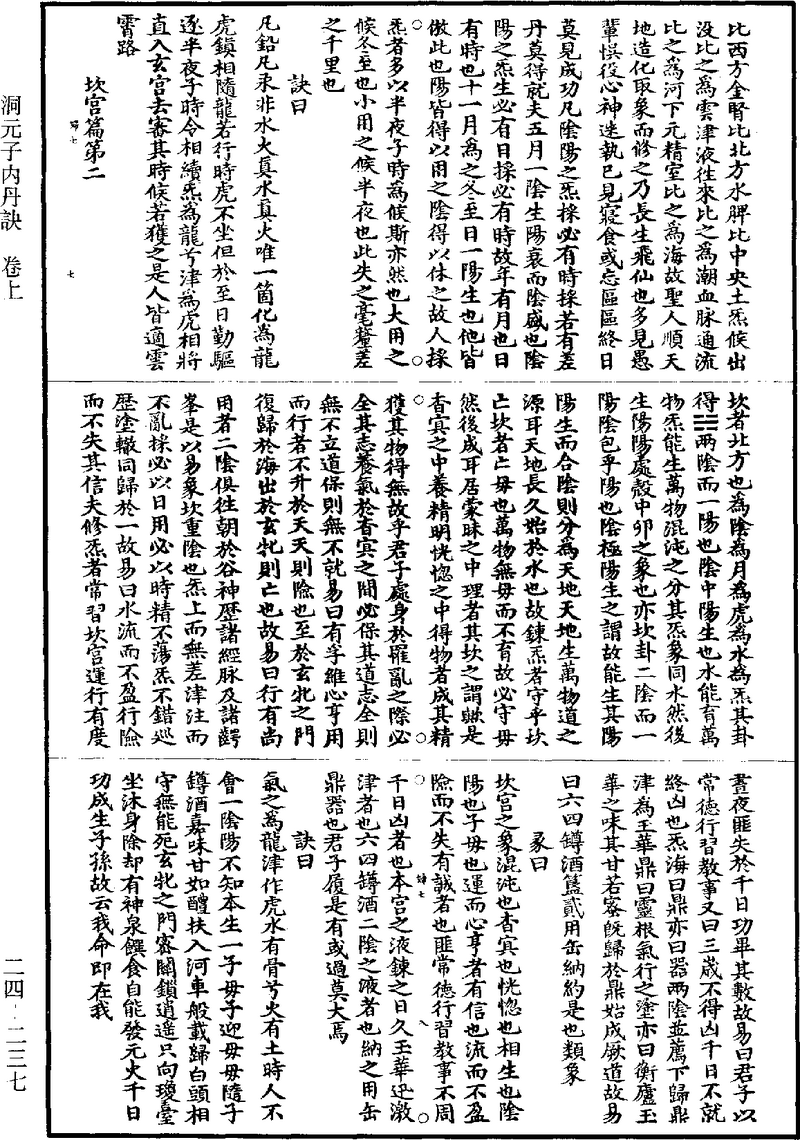 洞元子内丹訣　卷上
二四·二三七
比西方金腎比北方水脾比中央土炁候出
没比之為雲津液往來比之為潮血脉通流
比之為河下元精室比之為海故聖人順天
地造化取象而修之乃長生飛仙也多見愚
輩悞役心神迷執已見寢食或忘區區終日
莫見成功凡陰陽之炁採必有時採若有差
丹莫得就夫五月一陰生陽衰而陰盛也陰
陽之炁生必有日採必有時故年有月也日
有時也十一月為之冬至日一陽生也他皆
倣此也陽皆得以用之陰得以休之故人採
炁者多以半夜子時為候斯亦然也大用之
候冬至也小用之候半夜也此失之毫釐差
之千里也
訣曰
凡鉛凡汞非水火真水真火唯一箇化為龍
虎鎮相隨龍若行時虎不坐但於至日勤驅
逐半夜子時令相續炁為龍兮津為虎相將
直入玄宫去審其時候若獲之是人皆適雲
霄路
坎宫篇第二
婦七
七
坎者北方也為陰為月為虎為水為炁其卦
得☵兩陰而一陽也陰中陽生也水能育萬
物炁能生萬物混沌之分其炁象同水然後
生陽陽處殼中卵之象也亦坎卦二陰而一
陽陰包乎陽也陰極陽生之謂故能生其陽
陽生而合陰則分為天地天地生萬物道之
源耳天地長久始於水也故鍊炁者守乎坎
亡坎者亡母也萬物無母而不育故必守母
然後成耳居蒙昧之中理者其坎之謂歟是
杳冥之中養精明恍惚之中得物者成其精
獲其物得無故乎君子處身於罹亂之際必
全其志養氣於杳冥之間必保其道志全則
無不立道保則無不就易曰有孚維心亨用
而行者不升於天天則險也至於玄牝之門
復歸於海出於玄牝則亡也故易曰行有尚
用者二陰俱往朝於谷神歷諸經脉及諸齶
峯是以易象坎重陰也炁上而無差津注而
不亂採必以日用必以時精不蕩炁不錯巡
歷塗轍同歸於一故易曰水流而不盈行險
而不失其信夫修炁者常習坎宫運行有度
晝夜匪失於千日功畢其數故易曰君子以
常德行習教事又曰三歲不得凶千日不就
終凶也炁海曰鼎亦曰器兩陰並薦下歸鼎
津為玉華鼎曰靈根氣行之塗亦曰衡廬玉
華之味其甘若蜜既歸於鼎始成厥道故易
曰六四罇酒簋貳用缶納約是也類象
彖曰
坎宫之象混沌也杳冥也恍惚也相生也陰
陽也子母也運而心亨者有信也流而不盈
險而不失有誠者也匪常德行習教事不周
婦七
八
千日凶者也本宫之液鍊之日久玉華迅激
津者也六四罇酒二陰之液者也納之用缶
鼎器也君子履是有或過莫大焉
訣曰
氣之為龍津作虎水有骨兮火有土時人不
會一陰陽不知本生一子母子迎母母隨子
罇酒嘉味甘如醴扶入河車般載歸白頭相
守無能死玄牝之門密關鎖逍遥只向瓊臺
坐沐身除却有神泉饌食自能發元火千日
功成生子孫故云我命即在我